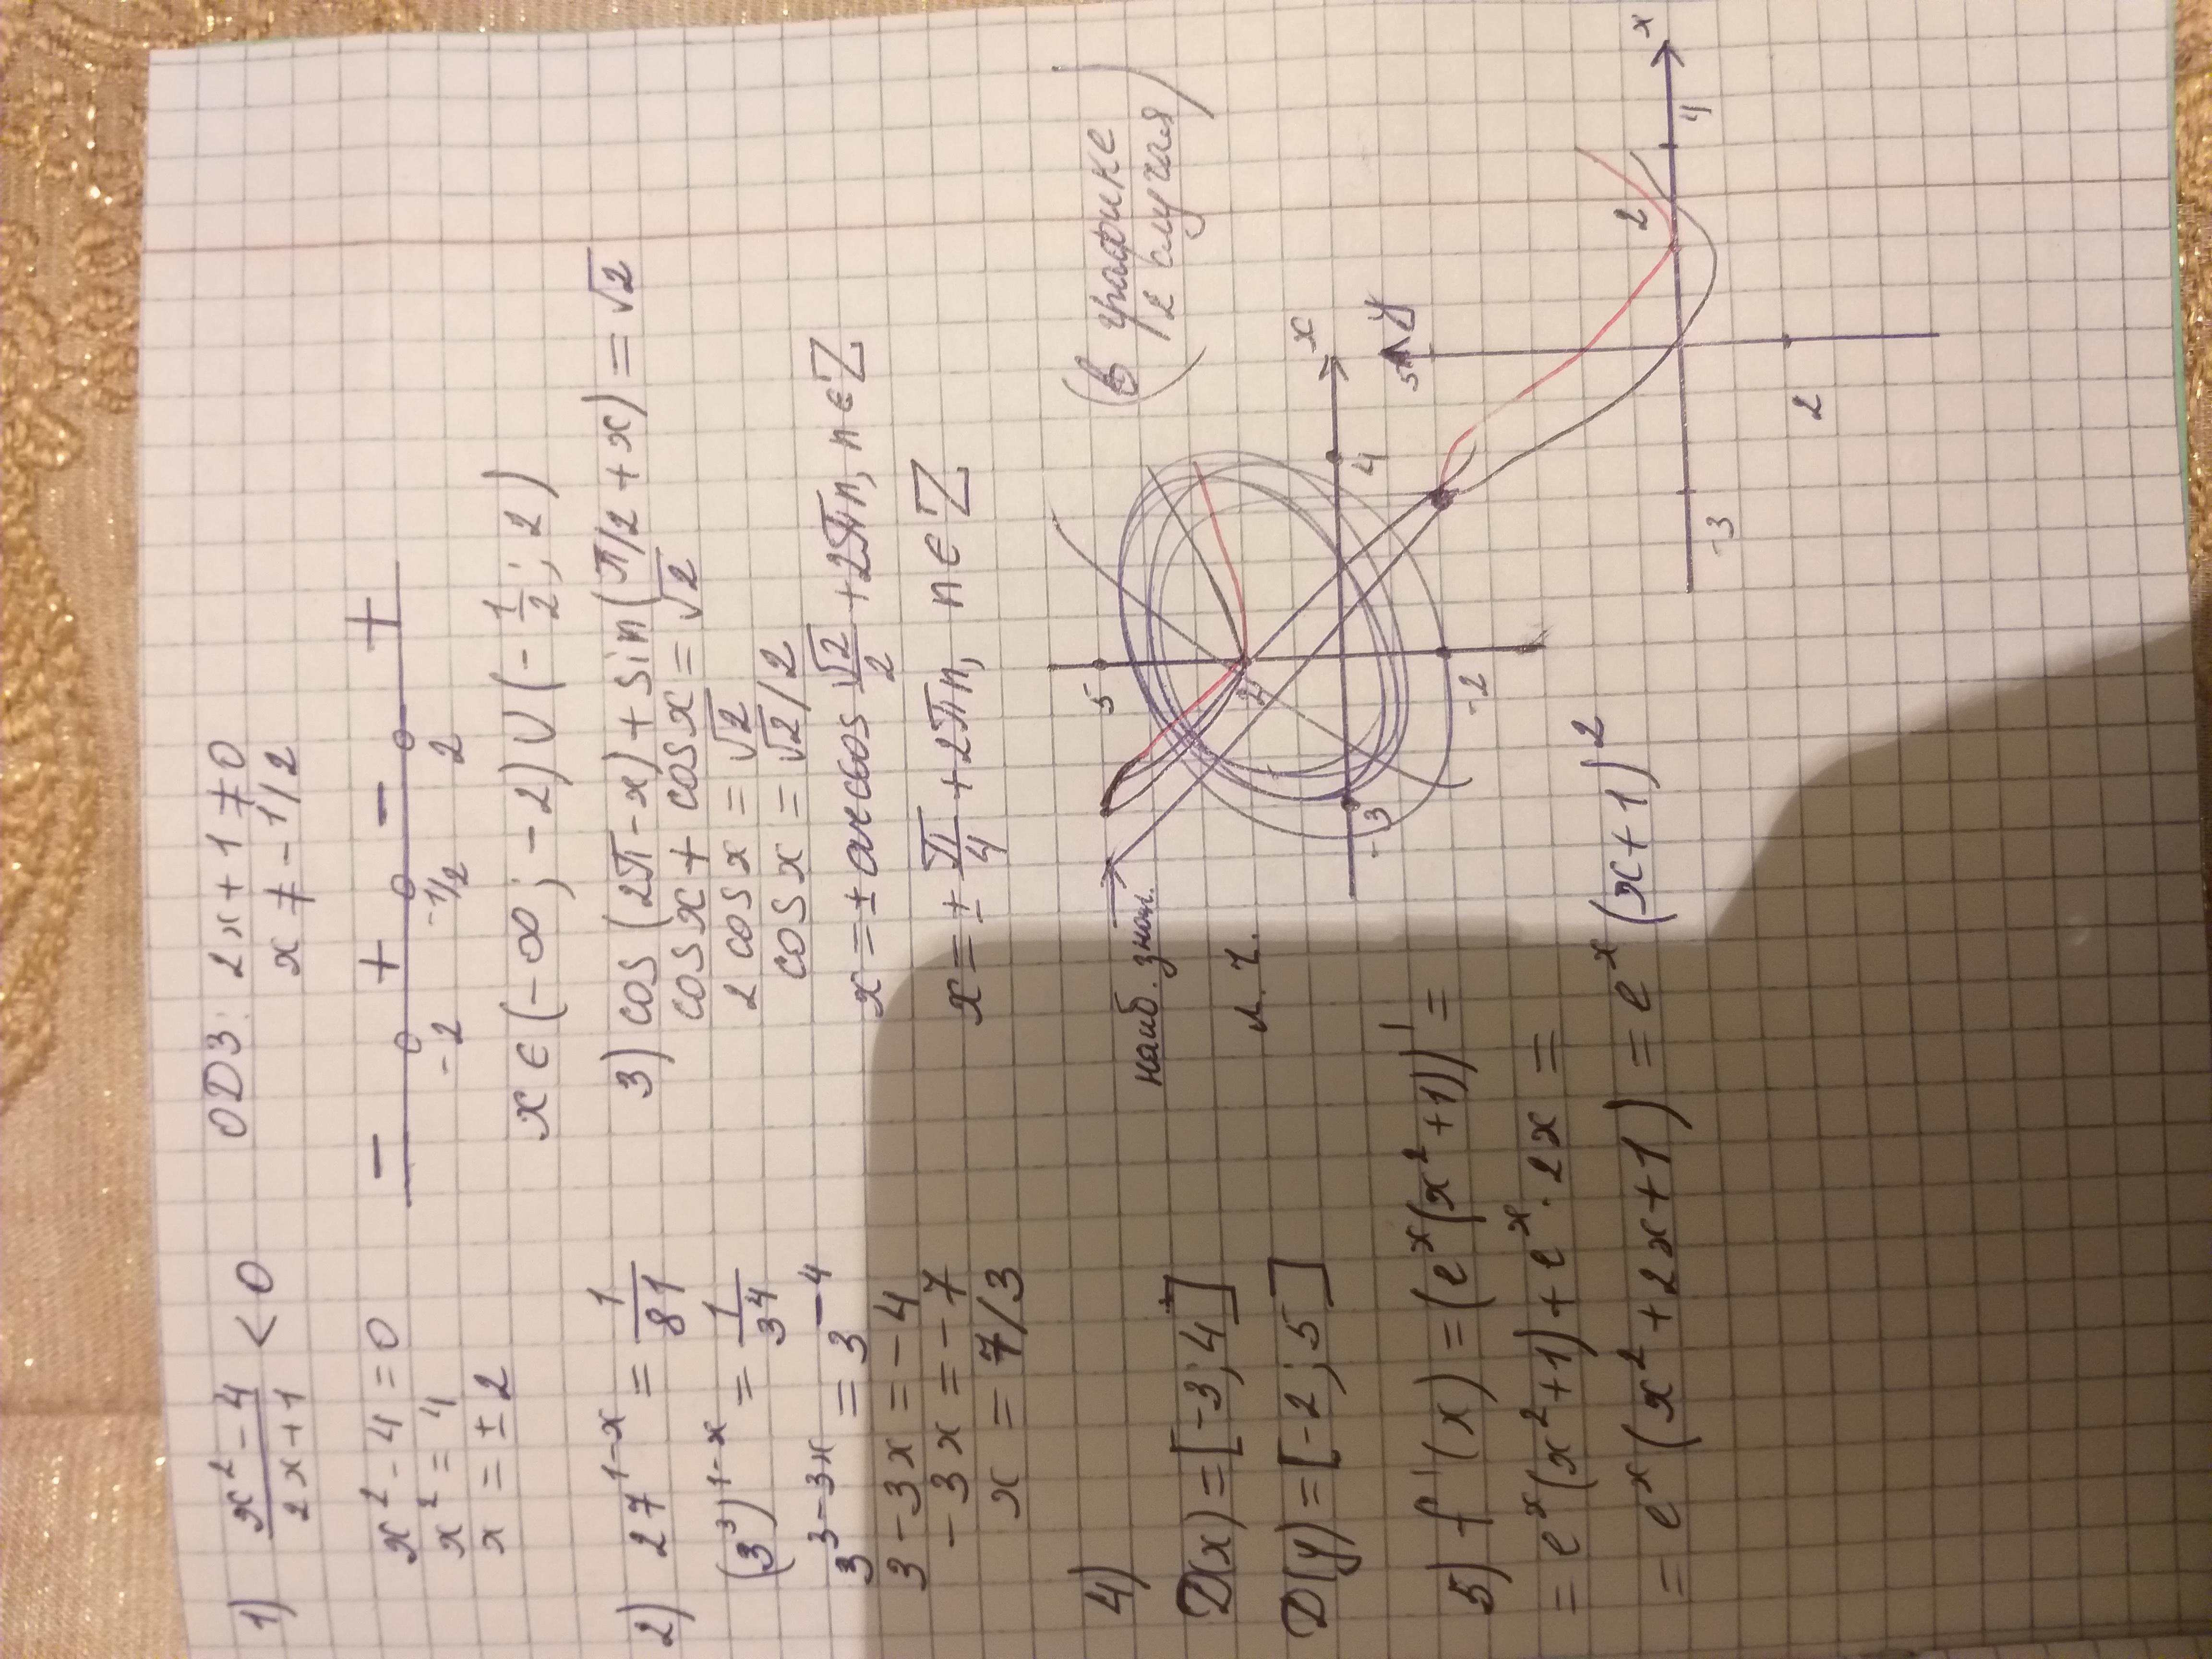 1) x² - 4 / 2x + 1 < 0
ОДЗ: 2x + 1 ≠ 0
x ≠ -1/2
x² - 4 = 0
x² = 4
x = ± 2
- + - +
-2 -1/2 2
x ∈ (-∞; -2) ∪ (-1/2; 2)
2) 27^(1-x) = 1/81
(3³)^(1-x) = 1/3⁴
3^(3-3x) = 3^(-4)
3 - 3x = -4
-3x = -7
x = 7/3
3) cos(2π - x) + sin(π/2 + x) = √2
cos x + cos x = √2
2 cos x = √2
cos x = √2/2
x = ± arccos √2/2 + 2πn, n ∈ Z
x = ± π/4 + 2πn, n ∈ Z
4)
D(x) = [-3; 4]
D(y) = [-2; 5]
наиб. знач.
(в графике
2 случая)
5
x
-3
4
-2
y
5
x
-3
2
4
2
5) f'(x) = (e^x(x² + 1))' =
= e^x(x² + 1) + e^x · 2x =
= e^x(x² + 2x + 1) = e^x(x + 1)²